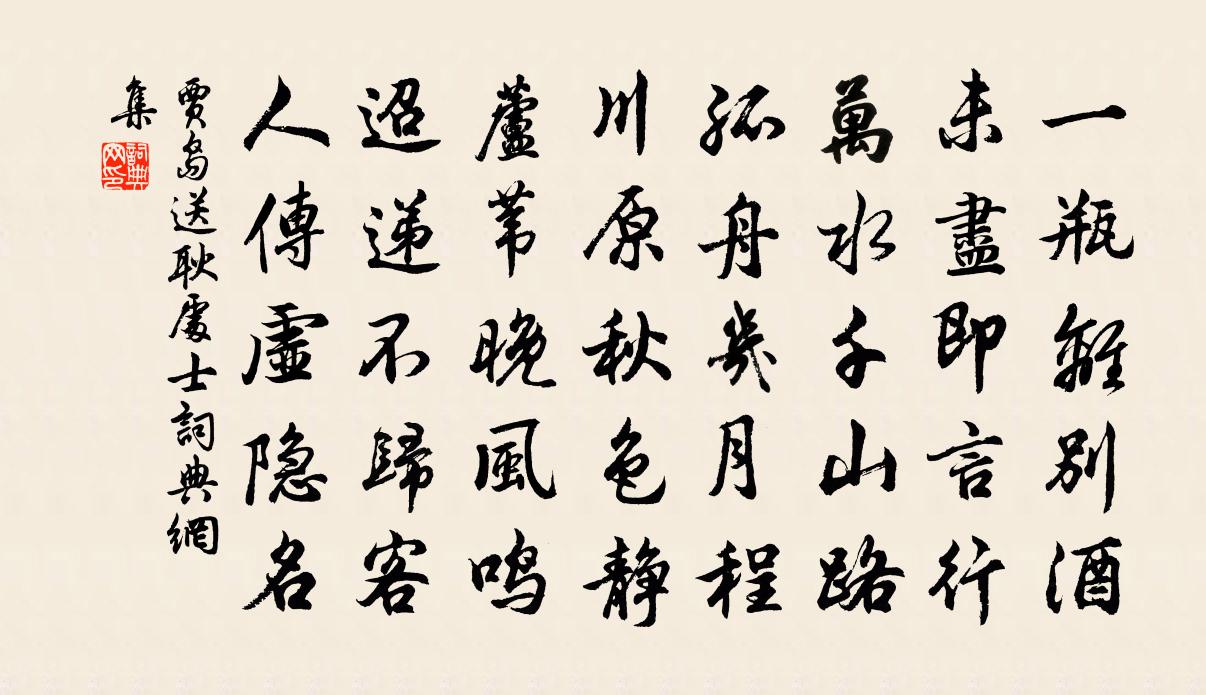 一瓶離別酒
未盡即言行
萬水千山路
孤舟幾月程
川原秋色静
蘆葦晚風鸣
迢遞不歸客
人傳虛隐名
賈島送耿處士詞典網
集
詞典
网印